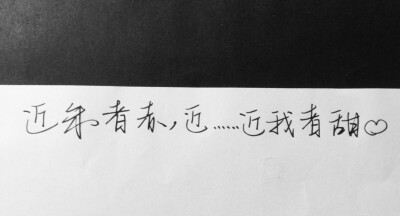 近朱者赤，近……近我者甜♡